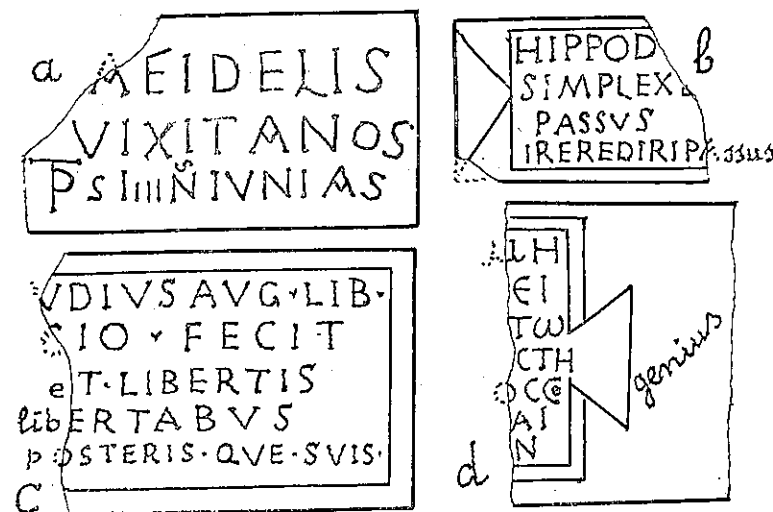 a
AFIDELIS
VIXITANOS
PSIIIIINIVNIAS
S
b
HIPPOD
SIMPLEX
PASSVS
IREREDIRIPAssus
C
VDIVS AVG LIB
SIO FECIT
eT·LIBERTIS
libERTABVS
pOSTERIS·QVE·SVIS·
d
ΛΙΗ
ЄΙ
ΤΩ
CTH
OCC
ΑΙ
Ν
genius